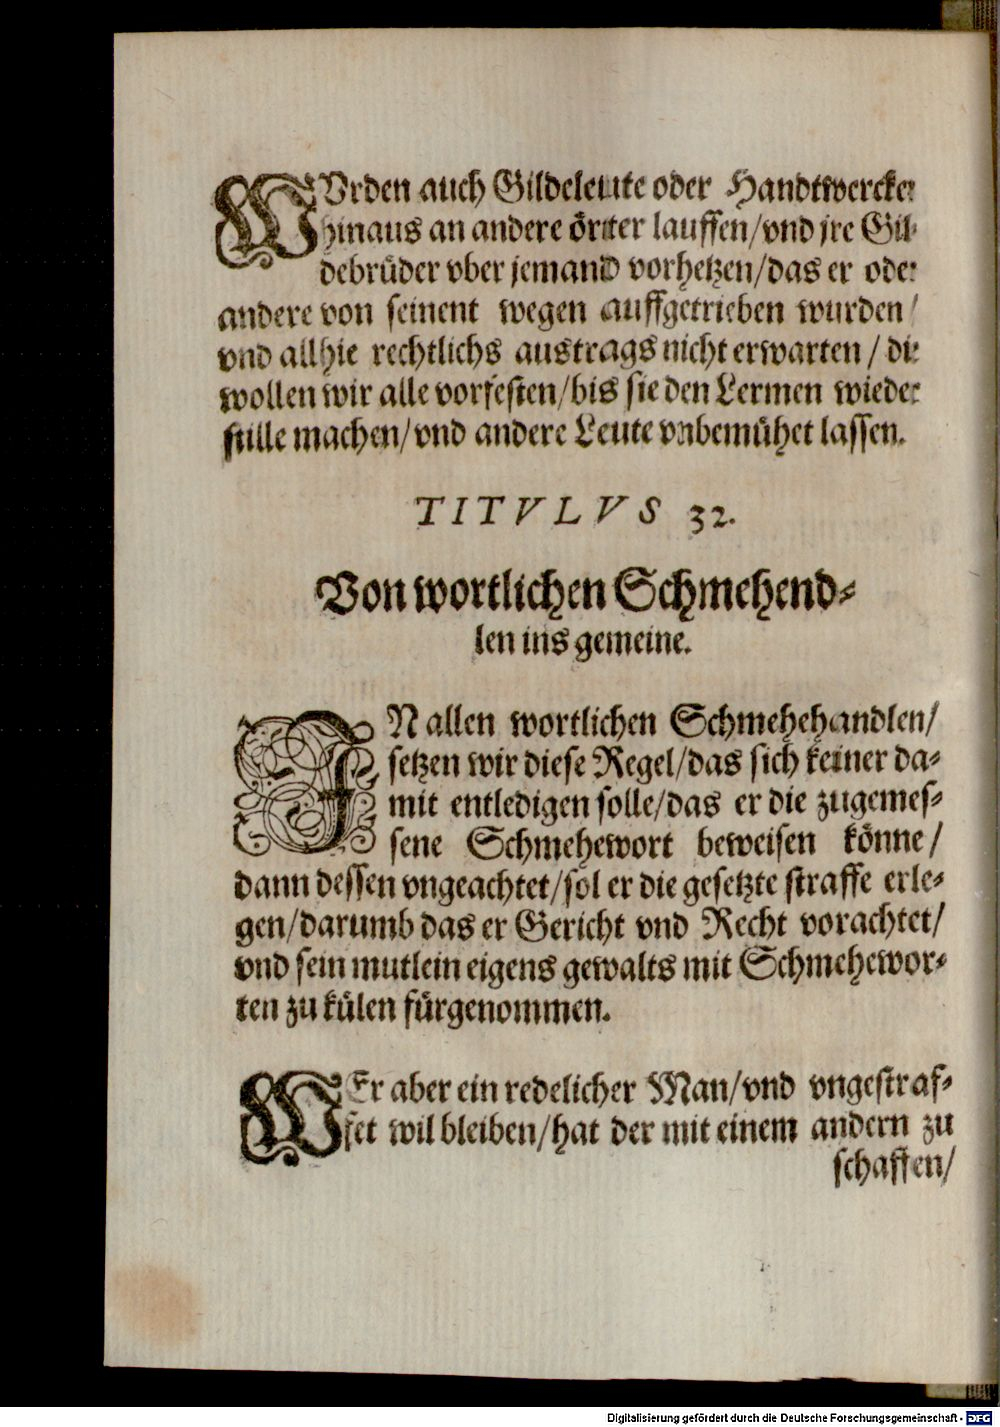 WVrden auch Gildeleute oder Handtwercker
hinaus an andere örtter lauffen/vnd jre Gil-
debrüder vber jemand vorhetzen/das er oder
andere von seinent wegen auffgetrieben wurden/
vnd allhie rechtlichs austrags nicht erwarten/die
wollen wir alle vorfesten/bis sie den Lermen wieder
stille machen/vnd andere Leute vnbemühet lassen.
TITVLVS 32.
Von wortlichen Schmehend-
len ins gemeine.
IN allen wortlichen Schmehehandlen/
setzen wir diese Regel/das sich keiner da-
mit entledigen solle/das er die zugemes-
sene Schmehewort beweisen könne/
dann dessen vngeachtet/sol er die gesetzte straffe erle-
gen/darumb das er Gericht vnd Recht vorachtet/
vnd sein mutlein eigens gewalts mit Schmehewor-
ten zu külen fürgenommen.
WEr aber ein redelicher Man/vnd vngestraf-
fet wil bleiben/hat der mit einem andern zu
schaffen/
Digitalisierung gefördert durch die Deutsche Forschungsgemeinschaft - DFG